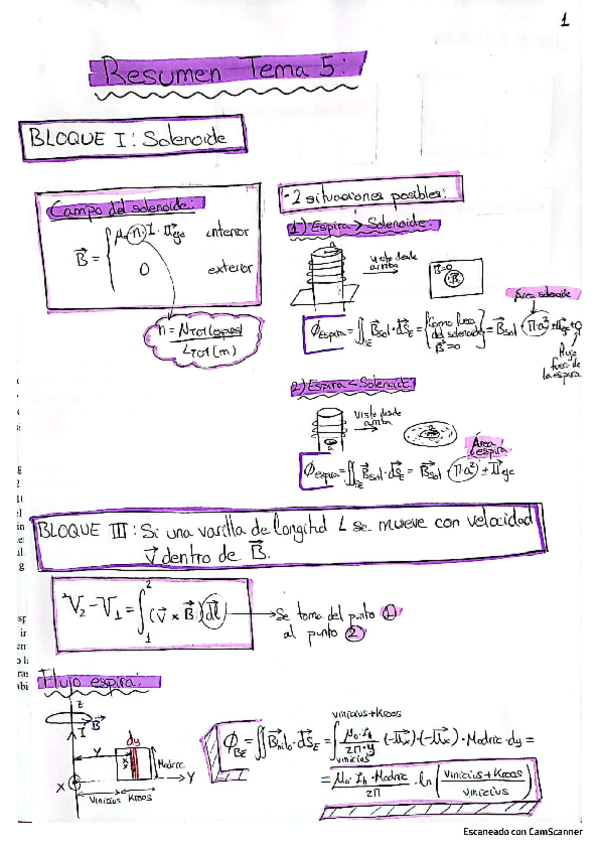 1
Resumen Tema 5:
BLOQUE I: Solenoide
Campo del solenoide:
B⃗ = { μ₀·n·I · u⃗eje interior
0 exterior
n = NTOT(espiras) / LTOT(m)
- 2 situaciones posibles:
1) Espira > Solenoide:
visto desde arriba
B⃗=0
B⃗
Área solenoide
ϕEspira = ∬SE B⃗sol · dS⃗E = {como fuera del solenoide B⃗=0} = B⃗sol · π·a² · u⃗eje + 0
Flujo fuera de la espira
2) Espira < Solenoide
Visto desde arriba
a
Área espira
ϕespira = ∬SE B⃗sol · dS⃗E = B⃗sol · π·a² · ± u⃗eje
BLOQUE III: Si una varilla de longitud L se mueve con velocidad
v⃗ dentro de B⃗.
V₂ - V₁ = ∫₁² (v⃗ × B⃗) dl⃗
Se toma del punto 1
al punto 2
Flujo espira:
z
B⃗
I
dy
y
Modric
X
Y
Vinicius Kroos
ϕBE = ∬ B⃗hilo · dS⃗E = ∫vinicius^vinicius+Kroos μ₀·Ih / 2π·y (-u⃗x)·(-u⃗x) · Modric · dy =
= μ₀·Ih·Modric / 2π · ln (vinicius + Kroos / vinicius)
Escaneado con CamScanner